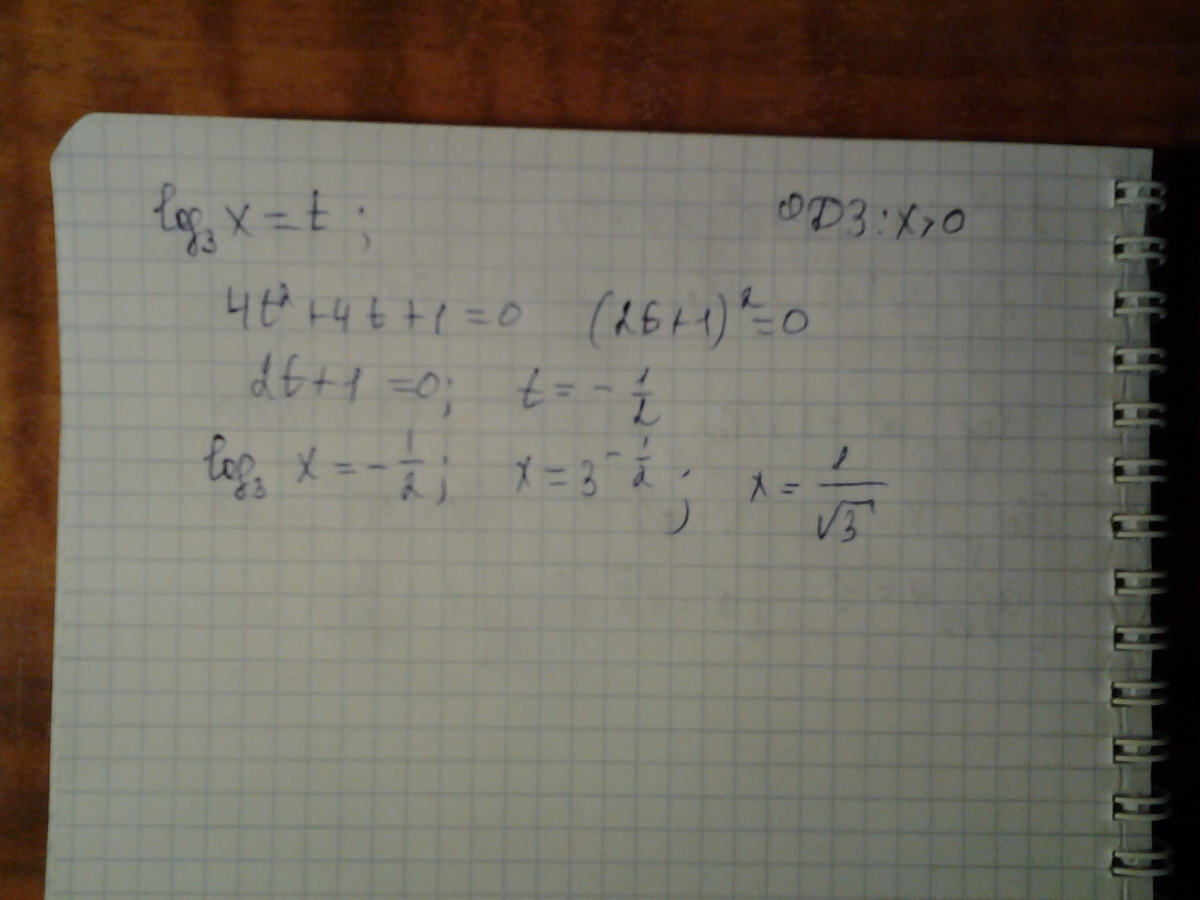 log₃ x = t ; ОДЗ: x > 0
4t² + 4t + 1 = 0 (2t+1)² = 0
2t + 1 = 0; t = - 1/2
log₃ x = - 1/2; x = 3^(-1/2); x = 1/√3